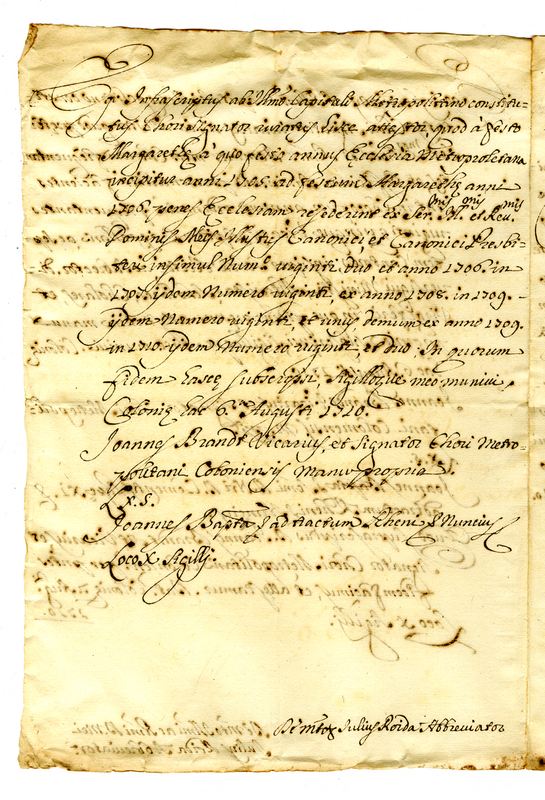 Infrascriptus ab Illmo Capitulo Metropolitano constitu=
tus Chori Signator iuratus hisce attestor, quod à festo
Margarethę, à quo festo annus Ecclesia Metropolitana
incipitur anni 1705. ad festum Margarethę anni
1706. penes Ecclesiam resederint ex Ser. Il. et Reu.
mis mis mis
Dominis Meis Illustres Canonici, et Canonici Presbi=
teri insimul Num.o uiginti, duo et anno 1706. in
1707. ijdem Numero uiginti, ex anno 1708. in 1709.
ijdem Numero uiginti, et unus demum ex anno 1709.
in 1710. ijdem Numero uiginti, et duo. In quorum
fidem hasce subscripsi, Sigilloque meo muniui
Colonię hac 6. Augusti 1710.
Joannes Brandt Vicarius, et Signator Chori Metro=
politani Coloniensis Manu propria.
L. x. S.
Joannes Bapta ad tractum Rheni Nuncius
Loco X Sigilli.
Julius Roida Abbreviator